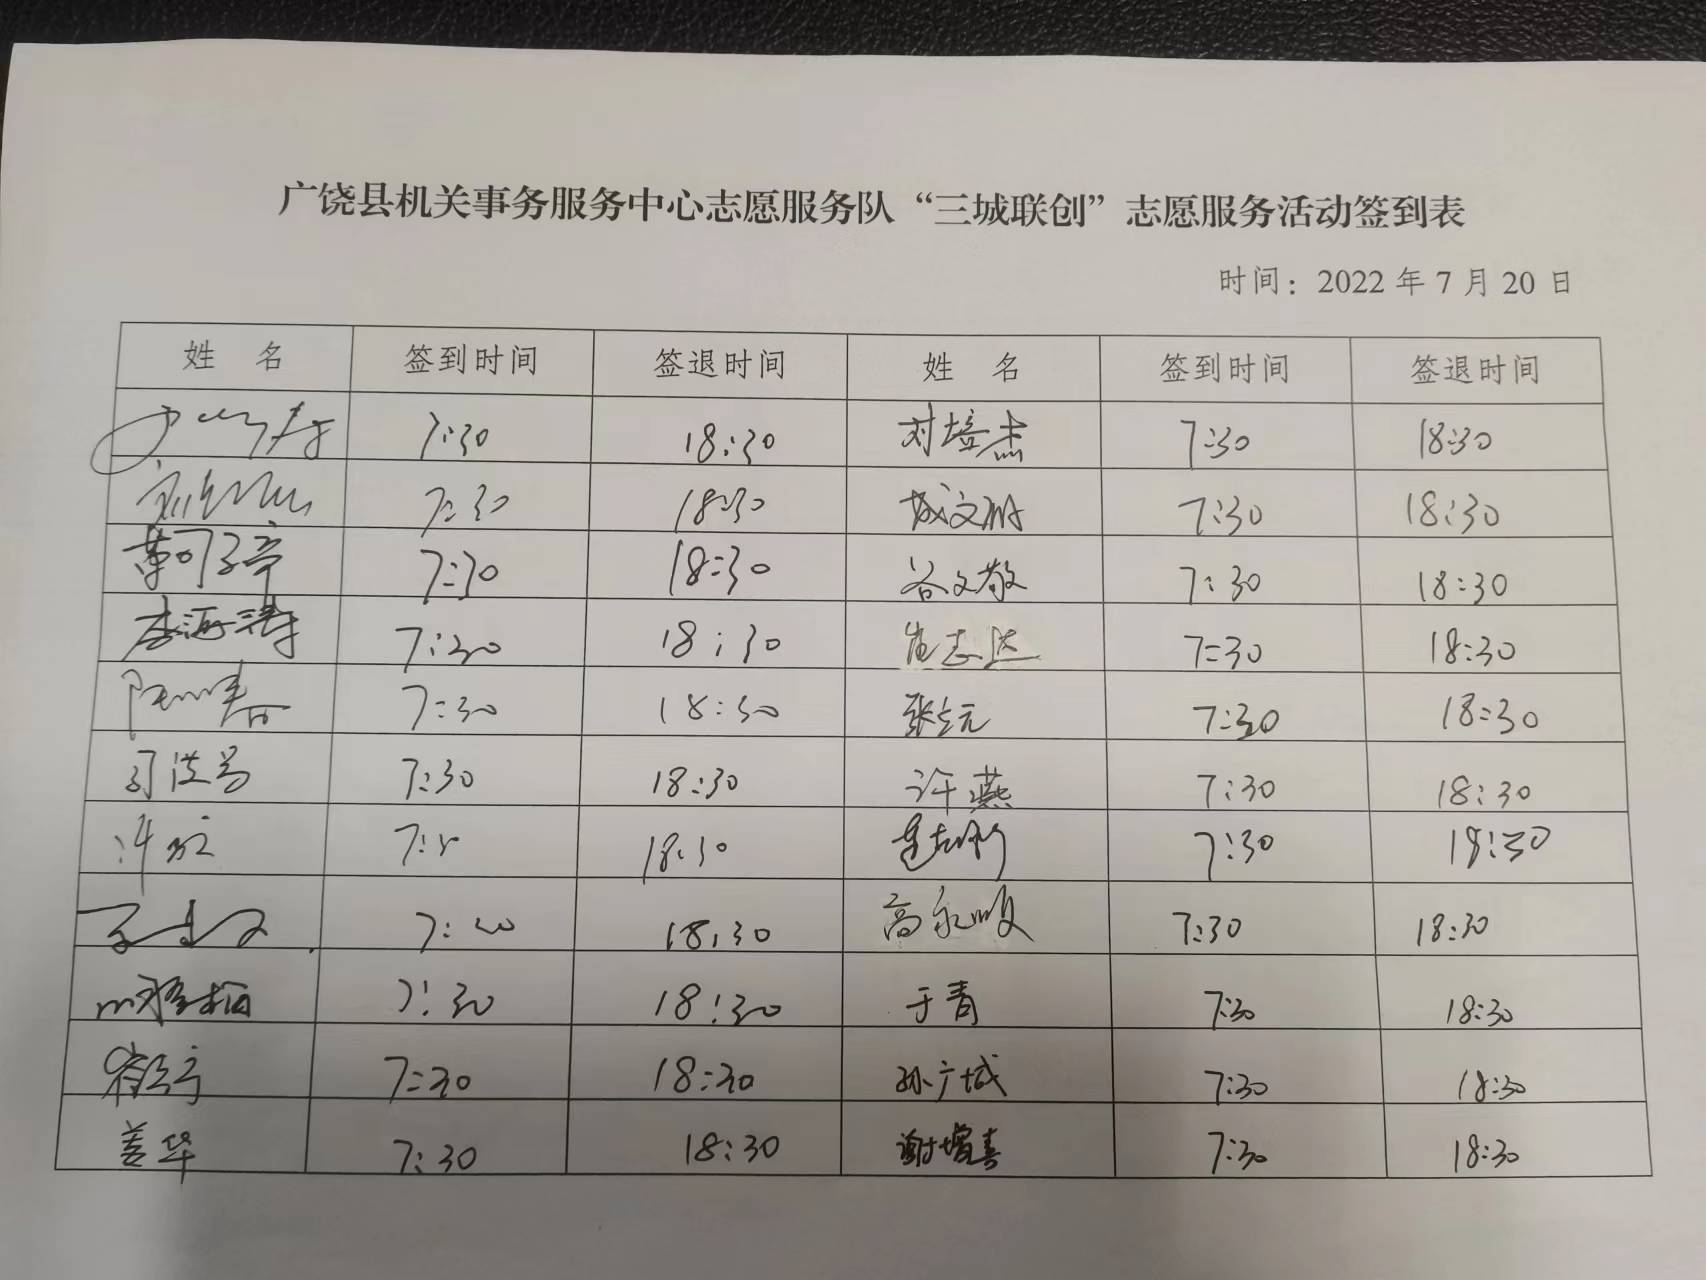 广饶县机关事务服务中心志愿服务队“三城联创”志愿服务活动签到表
时间：2022年7月20日
姓 名 签到时间 签退时间 姓 名 签到时间 签退时间
7:30 18:30 刘培杰 7:30 18:30
7:30 18:30 成文 7:30 18:30
7:30 18:30 谷文敬 7:30 18:30
李海涛 7:30 18:30 崔志达 7:30 18:30
7:30 18:30 张立元 7:30 18:30
7:30 18:30 许燕 7:30 18:30
18:30 7:30 18:30
7:30 18:30 高永顺 7:30 18:30
7:30 18:30 于青 7:30 18:30
7:30 18:30 孙广城 7:30 18:30
姜华 7:30 18:30 谢增喜 7:30 18:30